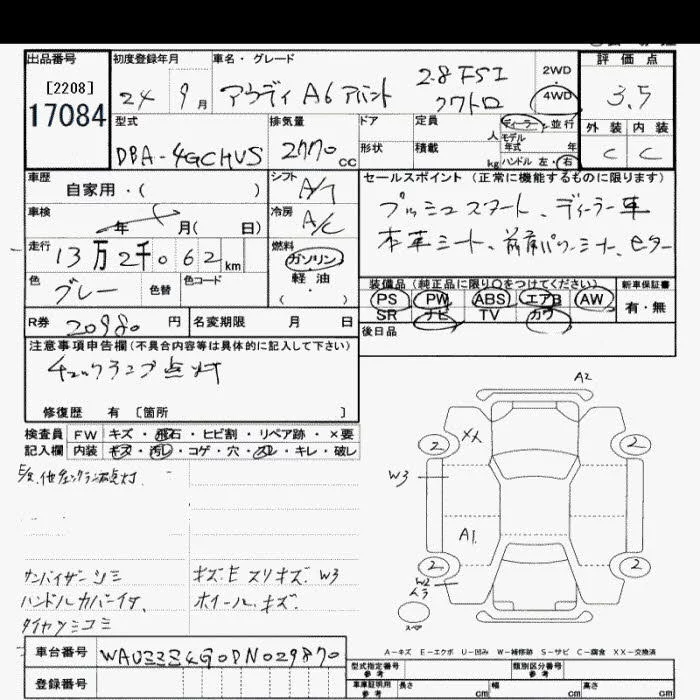 出品番号 初度登録年月 車名・グレード 評価点
[2208]
17084
24 9月 アウディ A6 アバント 2.8FSI クワトロ
2WD
4WD
3.5
外装 内装
C C
型式 排気量 ドア 定員 人 ディーラー・並行
DBA-4GCHVS 2770cc
形状 積載 kg モデル年式 年
ハンドル 左・右
車歴 自家用・( )
シフト A/T
セールスポイント (正常に機能するものに限ります)
プッシュスタート、ディーラー車
本革シート、前席パワーシート、セター
車検 年 月( 日)
冷房 A/C
走行 13万2千062km
燃料 ガソリン・軽油
( ・ )
色 グレー 色替 色コード
装備品 (純正品に限り〇をつけてください) 新車保証書
PS PW ABS エアB AW
SR ナビ TV カワ
有・無
後日品
R券 20980円 名変期限 月 日
注意事項申告欄(不具合内容等は具体的に記入して下さい)
チェックランプ点灯
修復歴 有 [箇所 ]
検査員 FW キズ・飛石・ヒビ割・リペア跡・×要
記入欄 内装 キズ・汚レ・コゲ・穴・スレ・キレ・破レ
E/g.他チェックランプ点灯.
サンバイザーシミ
ハンドルカバーイタ.
タイヤツミコミ
キズ.E スリキズ. W3
ホイールキズ.
A2
XX
2 2
W3
A1
2 2
W2
スペア
A-キズ E-エクボ U-凹み W-補修跡 S-サビ C-腐食 XX-交換済
車台番号 WAUZZZ4G0DN029870
登録番号
型式指定番号 参考 類別区分番号 参考
車庫証明用 参考 長さ cm 幅 cm 高さ cm